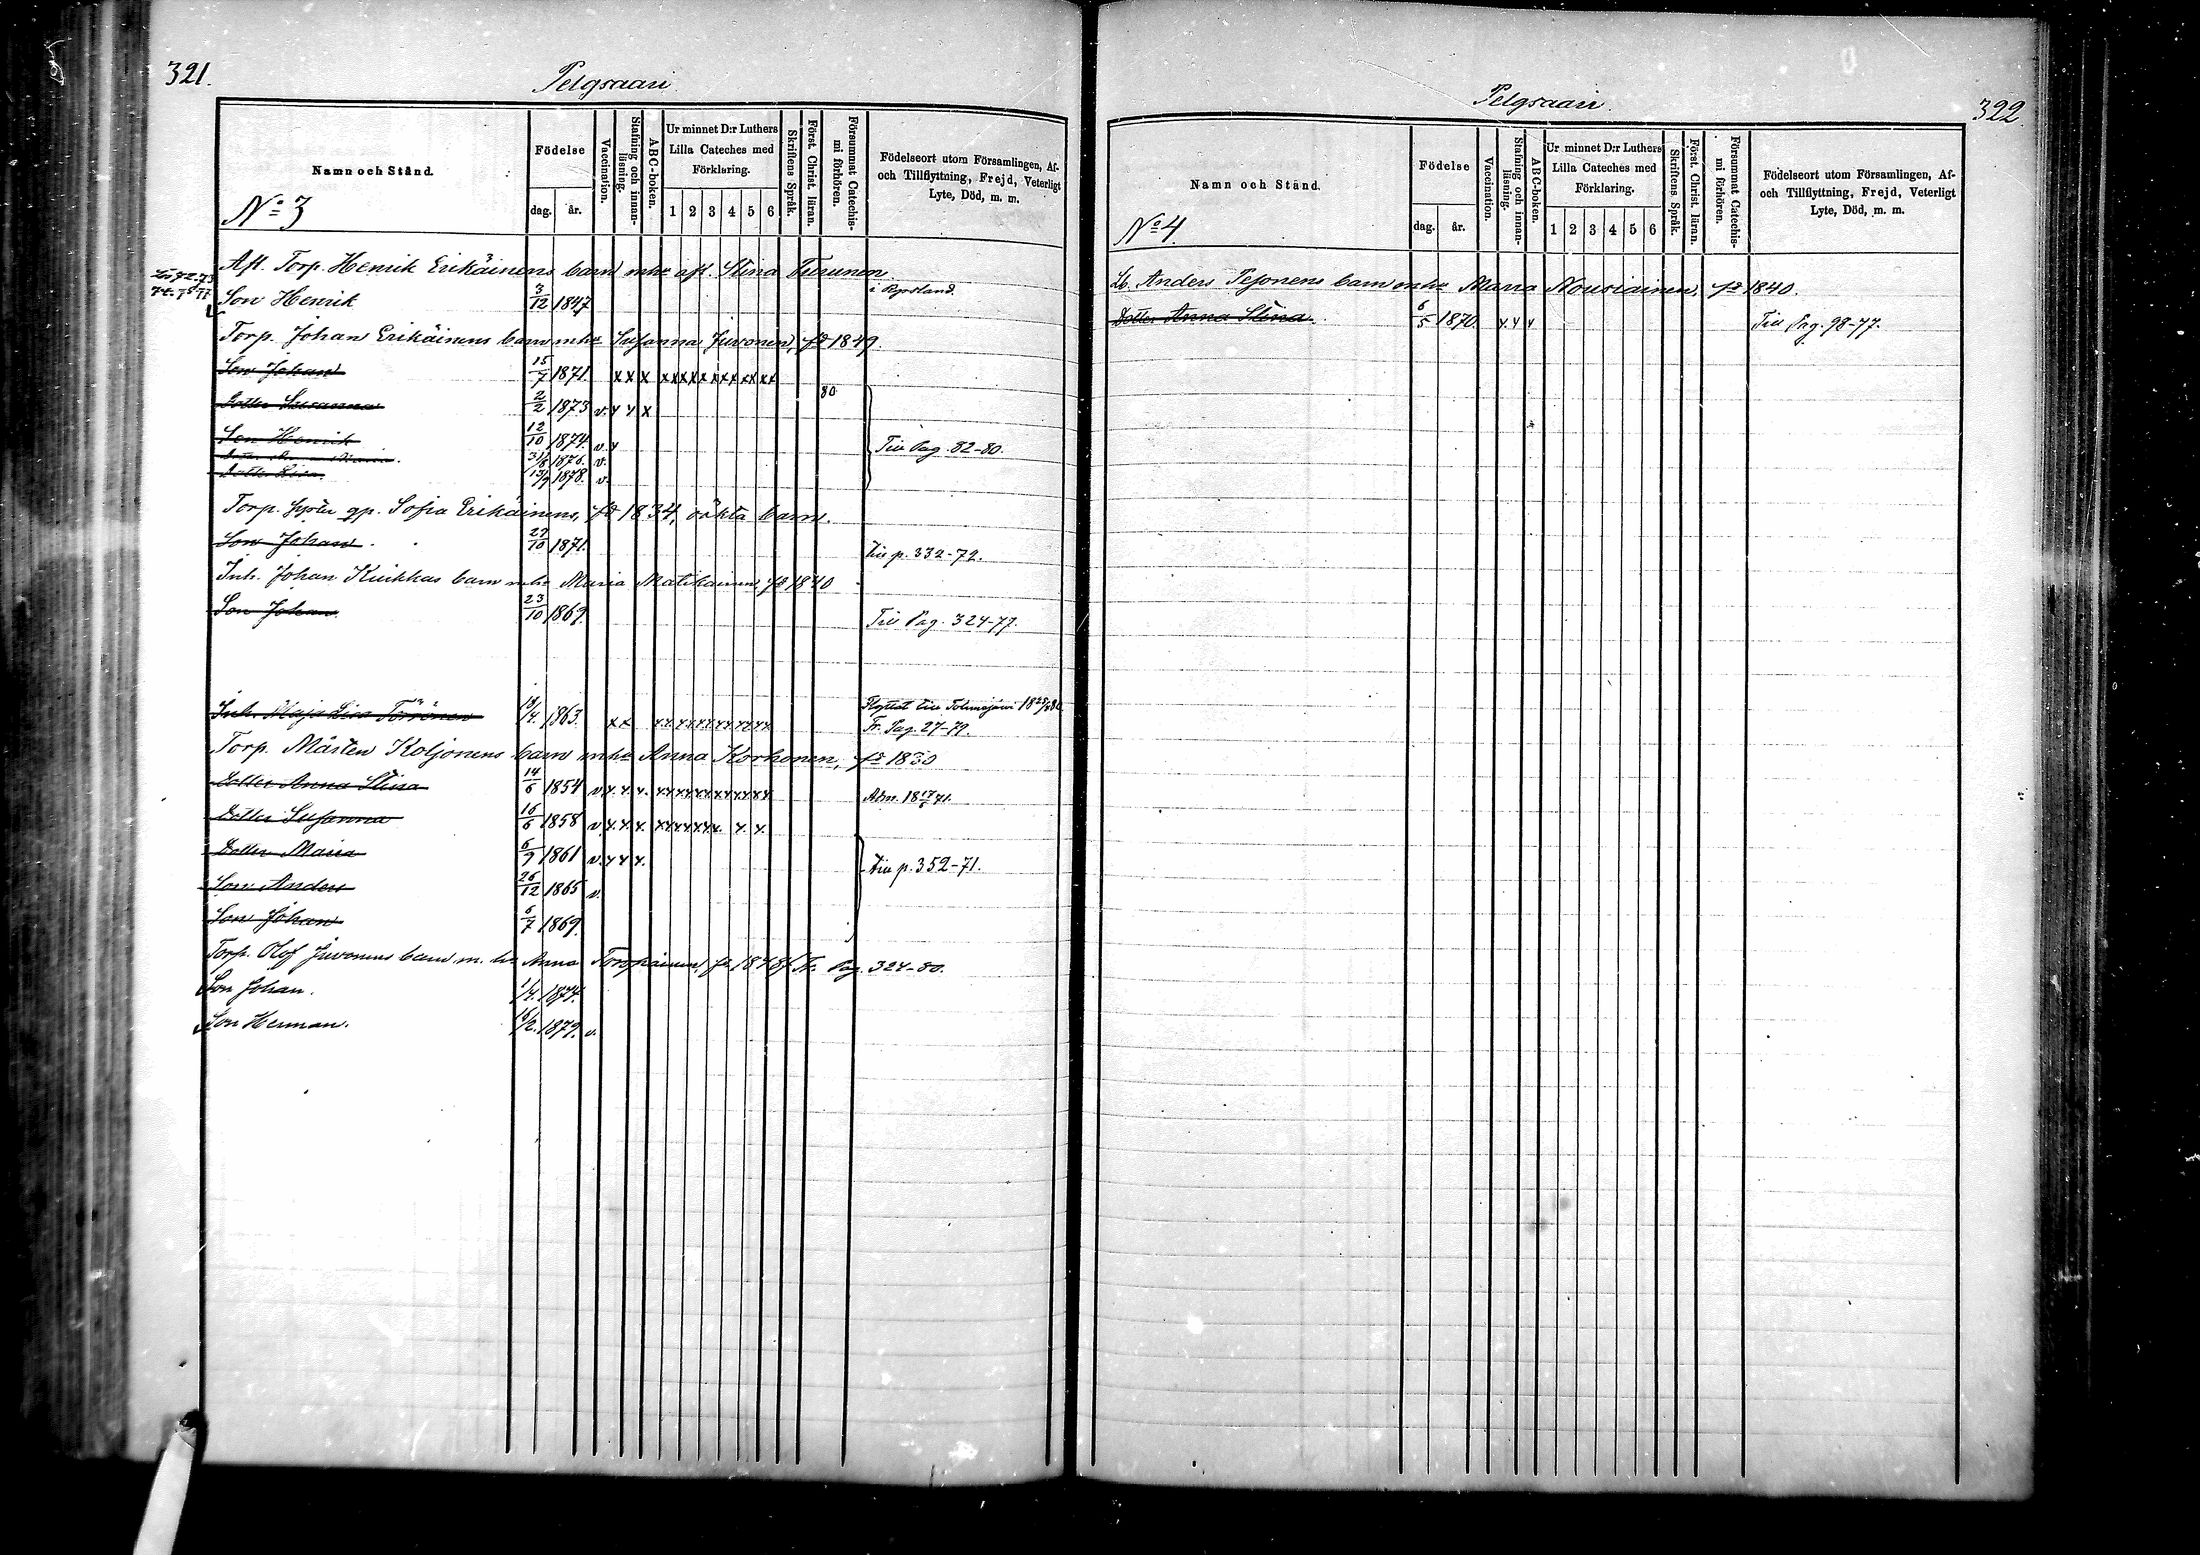 321.
Pelgsaari
Namn och Stånd.
Födelse
dag. år.
Vaccination.
Stafning och innan-
läsning.
ABC-boken.
Ur minnet D:r Luthers
Lilla Cateches med
Förklaring.
1 2 3 4 5 6
Skriftens Språk.
Först. Christ. läran.
Försummat Catechis-
mi förhören.
Födelseort utom Församlingen, Af-
och Tillflyttning, Frejd, Veterligt
Lyte, Död, m. m.
No 3
Afl. Torp. Henrik Erikäinens barn mhu afl. Stina Turunen.
Son Henrik 3/12 1847 i Ryssland.
Torp. Johan Erikäinens barn mhu Susanna Juvonen, fd 1849.
Son Johan 15/7 1871. x x x x x x x x x x x x x x
Dotter Susanna 2/2 1873 v. x x x 80
Son Henrik 12/10 1874. v. x Till Pag. 82-80.
31/8 1876. v.
Dotter Lisa. 13/9 1878. v.
Torp. gp. Sofia Erikäinens, fd 1834, oäkta barn.
Son Johan. 29/10 1871. till p. 332-72.
Inh. Johan Kuikkas barn mhu Maria Matikainen, fd 1840
Son Johan. 23/10 1869. Till Pag. 324-77.
Inh. Maja Lisa Törrönen 18/4. 1863. x x x x x x x x x x x x x Flyttat till Tohmajärvi
Fr. Pag. 27-79.
Torp. Mårten Koljonens barn mhu Anna Korhonen, fd 1830
Dotter Anna Stina 14/6 1854 v. x. x. x. x x x x x x x x x x x x Adm. 18 17/6 71.
Dotter Susanna 16/6 1858 v. x. x. x. x x x x x x x. x. x.
Dotter Maria 6/9 1861 v. x x x. till p. 352-71.
Son Anders 26/12 1865 v.
Son Johan 6/7 1869.
Torp. Olof Juvonens barn m. hu Anna Toropainen, fd 1848 / Fr. Pag. 324-80.
Son Johan. 1/4. 1874.
Son Herman. 16/2. 1879. v.
Pelgsaari
322.
Namn och Stånd.
Födelse
dag. år.
Vaccination.
Stafning och innan-
läsning.
ABC-boken.
Ur minnet D:r Luthers
Lilla Cateches med
Förklaring.
1 2 3 4 5 6
Skriftens Språk.
Först. Christ. läran.
Försummat Catechis-
mi förhören.
Födelseort utom Församlingen, Af-
och Tillflyttning, Frejd, Veterligt
Lyte, Död, m. m.
No 4.
Lb. Anders Pesonens barn mhu Maria Nousiainen, fd 1840.
Dotter Anna Stina. 6/5 1870. x. x x Till Pag. 98-77.